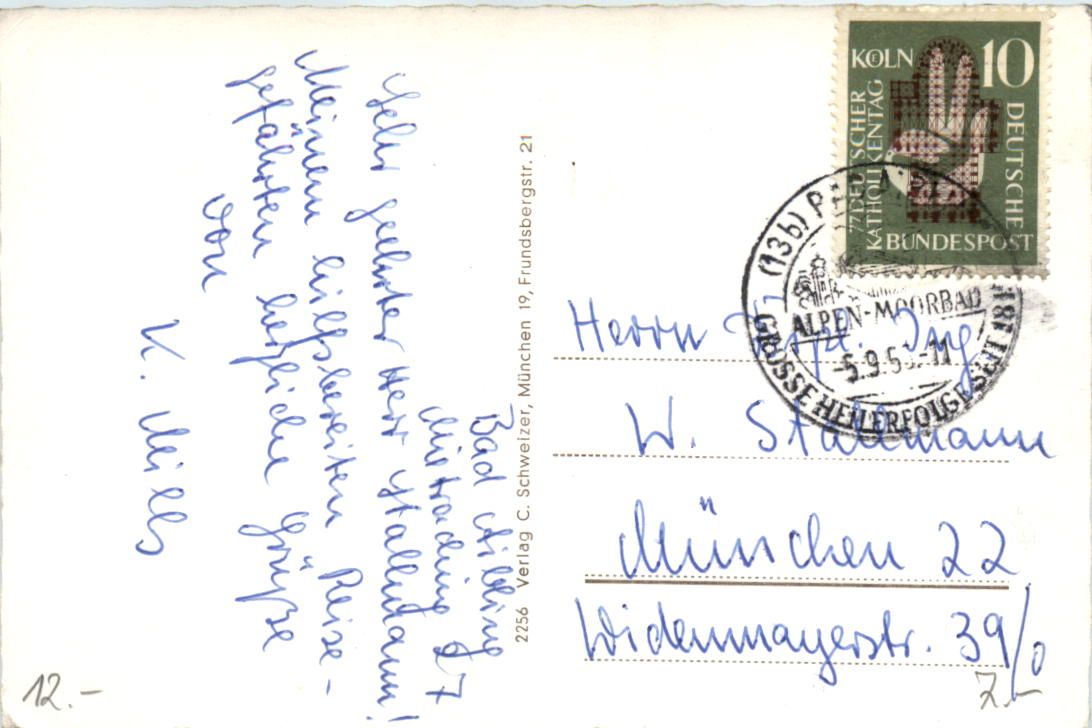 Bad Aibling
Mietraching 27
Sehr geehrter Herr Stallmann!
Meinem hilfsbereiten Reise-
gefährten herzliche Grüße
von
K. Mills
2256 Verlag C. Schweizer, München 19, Frundsbergstr. 21
KÖLN 10
77. DEUTSCHER
KATHOLIKENTAG
DEUTSCHE
BUNDESPOST
(13b)
ALPEN-MOORBAD
-5.9.5 -11
GROSSE HEILERFOLGE SEIT 1845
Herrn Dipl. Ing
W. Stallmann
München 22
Widenmayerstr. 39/0
12.-
7.-